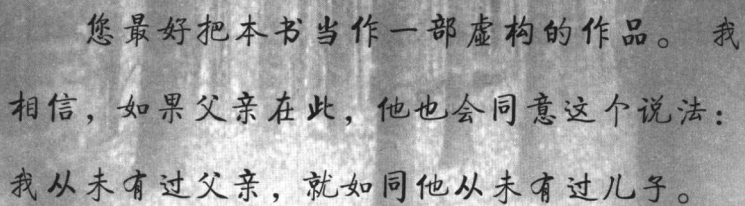 您最好把本书当作一部虚构的作品。 我
相信，如果父亲在此，他也会同意这个说法：
我从未有过父亲，就如同他从未有过儿子。